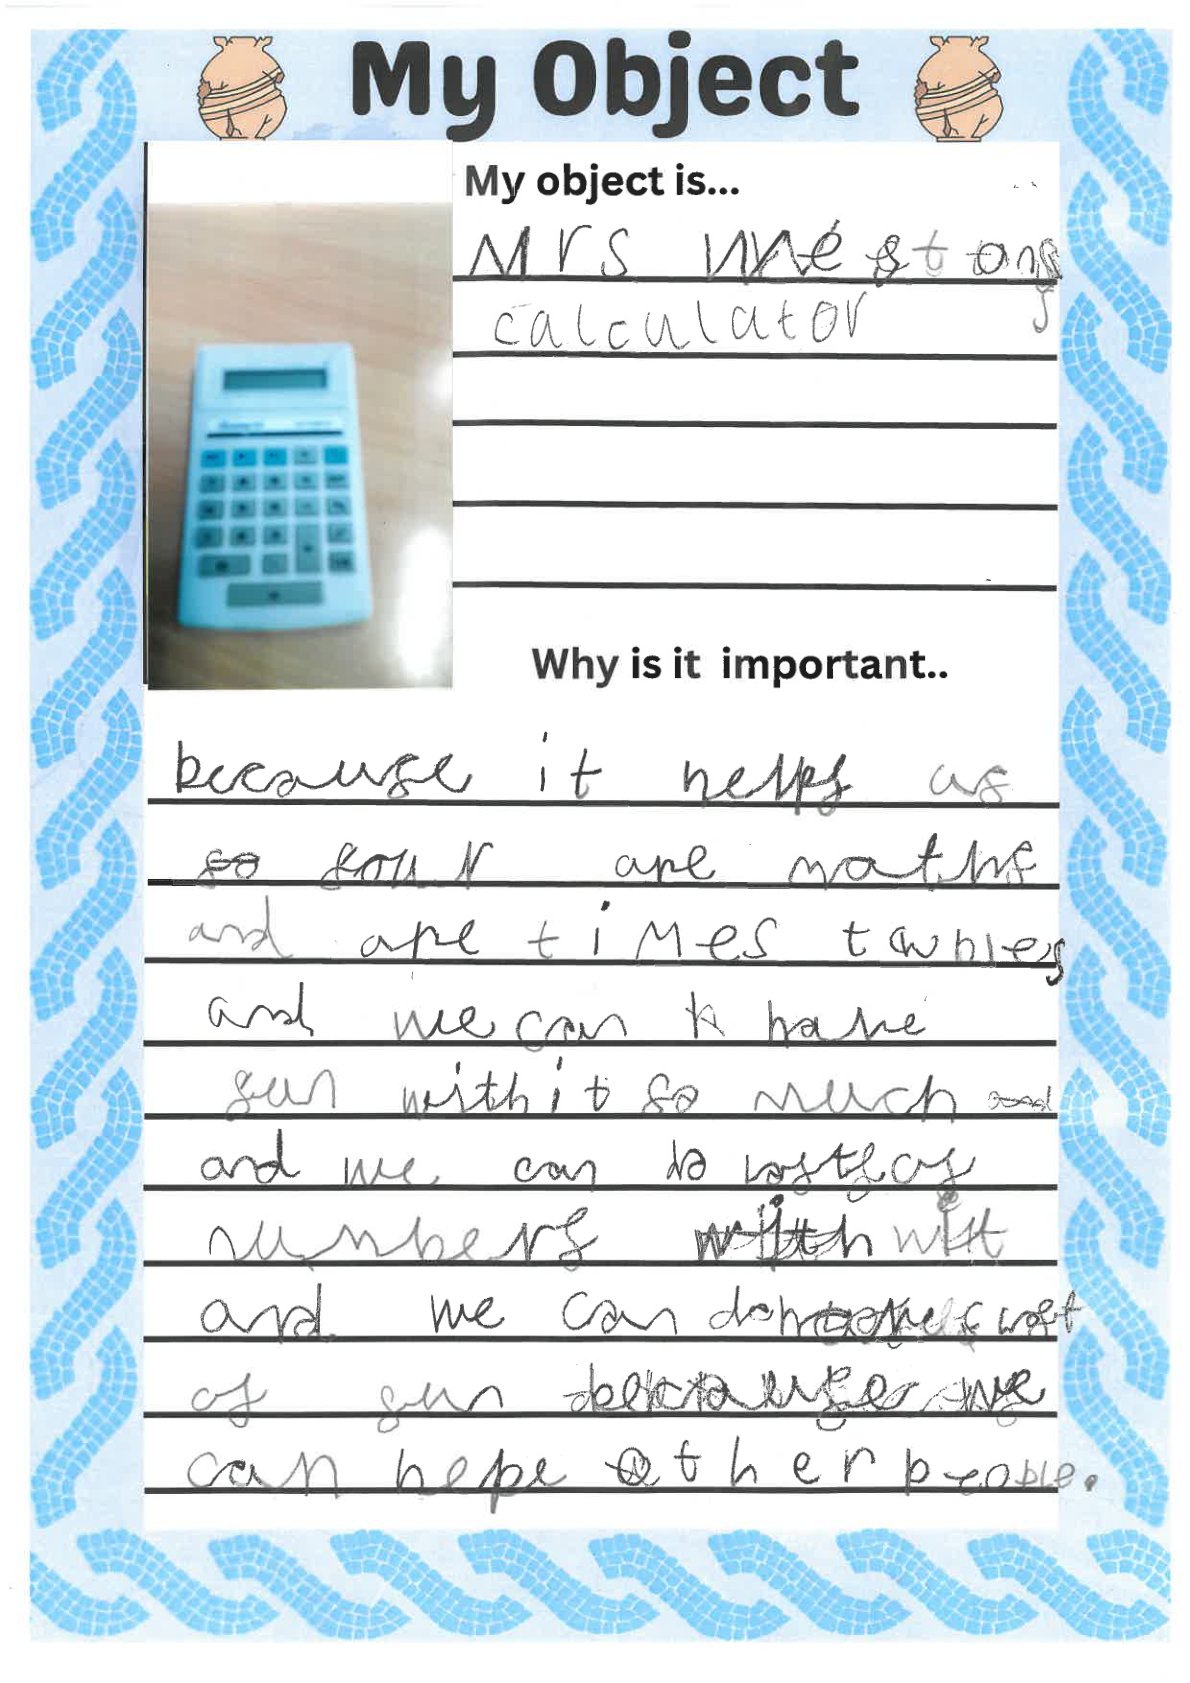 My Object
My object is...
Mrs westons
calculator
Why is it important..
because it helps us
so four are maths
and are times tables
and we can have
fun with it so much and
and we can do lots of
numbers with wit
and we can do
of fun because we
can hepe other people.